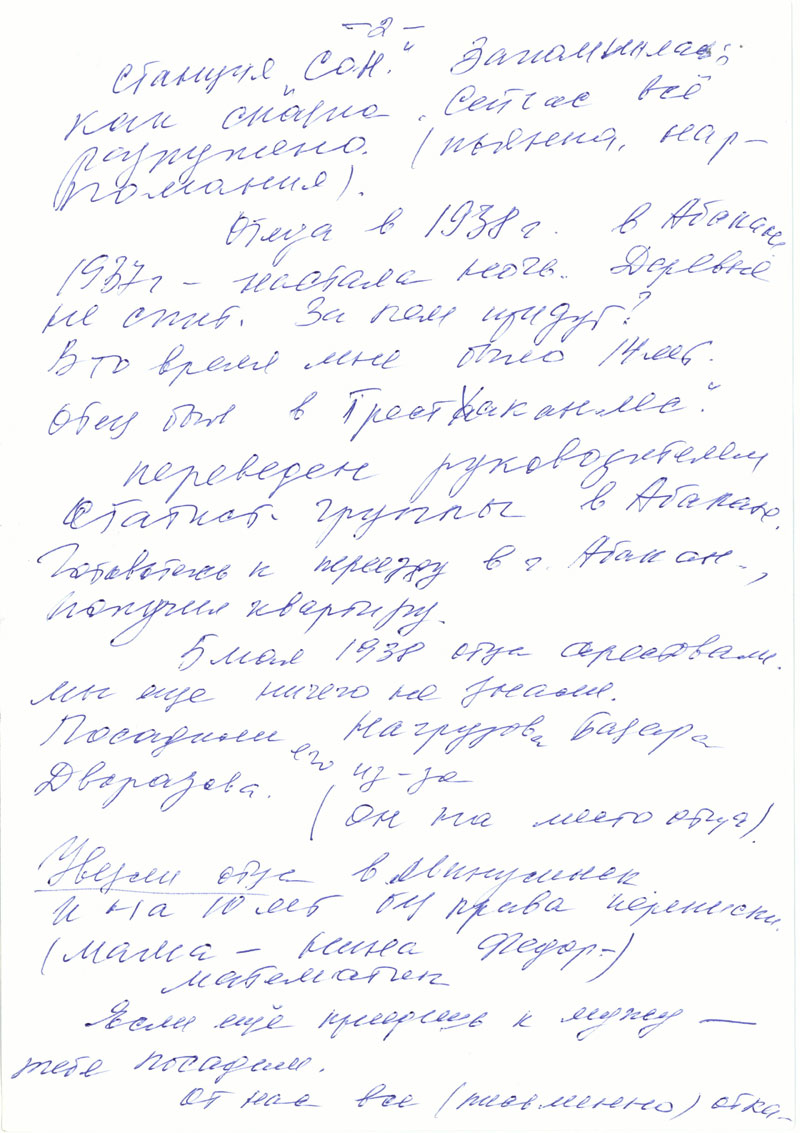 -2-
станция "Сон." Запомнилась
как сказка. Сейчас всё
разрушено. (пьянка, нар-
комания).
Отца в 1938 г. в Абакан
1937 г - настала ночь. Деревня
не спит. За кем придут?
В то время мне было 14 лет.
Отец был в Трест "Хаканлес".
переведен руководителем
Статист. группы в Абакан.
Готовились к переезду в г. Абакан.,
получил квартиру.
5 мая 1938 отца арестовали.
Мы еще ничего не знали.
Посадили его Нагрузова Базара
Дворазова. из-за
(он на место отца).
Увезли отца в Минусинск
и на 10 лет без права переписки.
(мама - Нина Федор-)
математик
Если ещё придешь к мужу —
тебя посадим.
От нас все (письменно) отка-